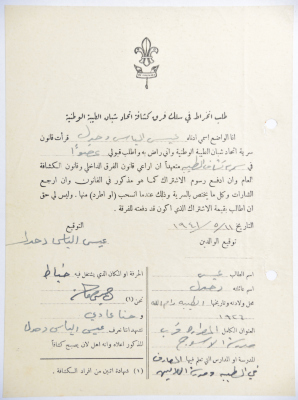 طلب انخراط في سلك فرق كشافة اتحاد شبان الطيبة الوطنية
انا الواضع اسمي ادناه عيسى الياس دحدل قرأت قانون
سرية اتحاد شبان الطيبة الوطنية واني راض به واطلب قبولي عضواً
في متعهداً ان اراعي القانون الداخلي وقانون الكشافة
العام وان ادفع رسوم الاشتراك كما هو مذكور في القانون وان ارجع
الشارات وكل ما يختص بالسرية وذلك عندما انسحب (او اطرد) منها . وليس لي حق
ان اطالب بقيمة الاشتراك الذي اكون قد دفعته للفرقة .
التاريخ
توقيع الوالدين
توقيع
عيسى الياس دحدل
اسم الطالب عيسى
اسم عائلته دحدل
محل ولادته وتاريخها الطيبه رام الله
العنوان الكامل
المدرسة او المدارس التي تعلم فيها
في الطيبه ومدرسة اللاتين
الحرفة او المكان الذي يشتغل فيه خياط
نحن (١)
و
نشهد اننا نعرف عيسى الياس دحدل
المذكور اعلاه وانه اهل لان يصبح كشافاً
(١) شهادة اثنين من افراد السكشافة .